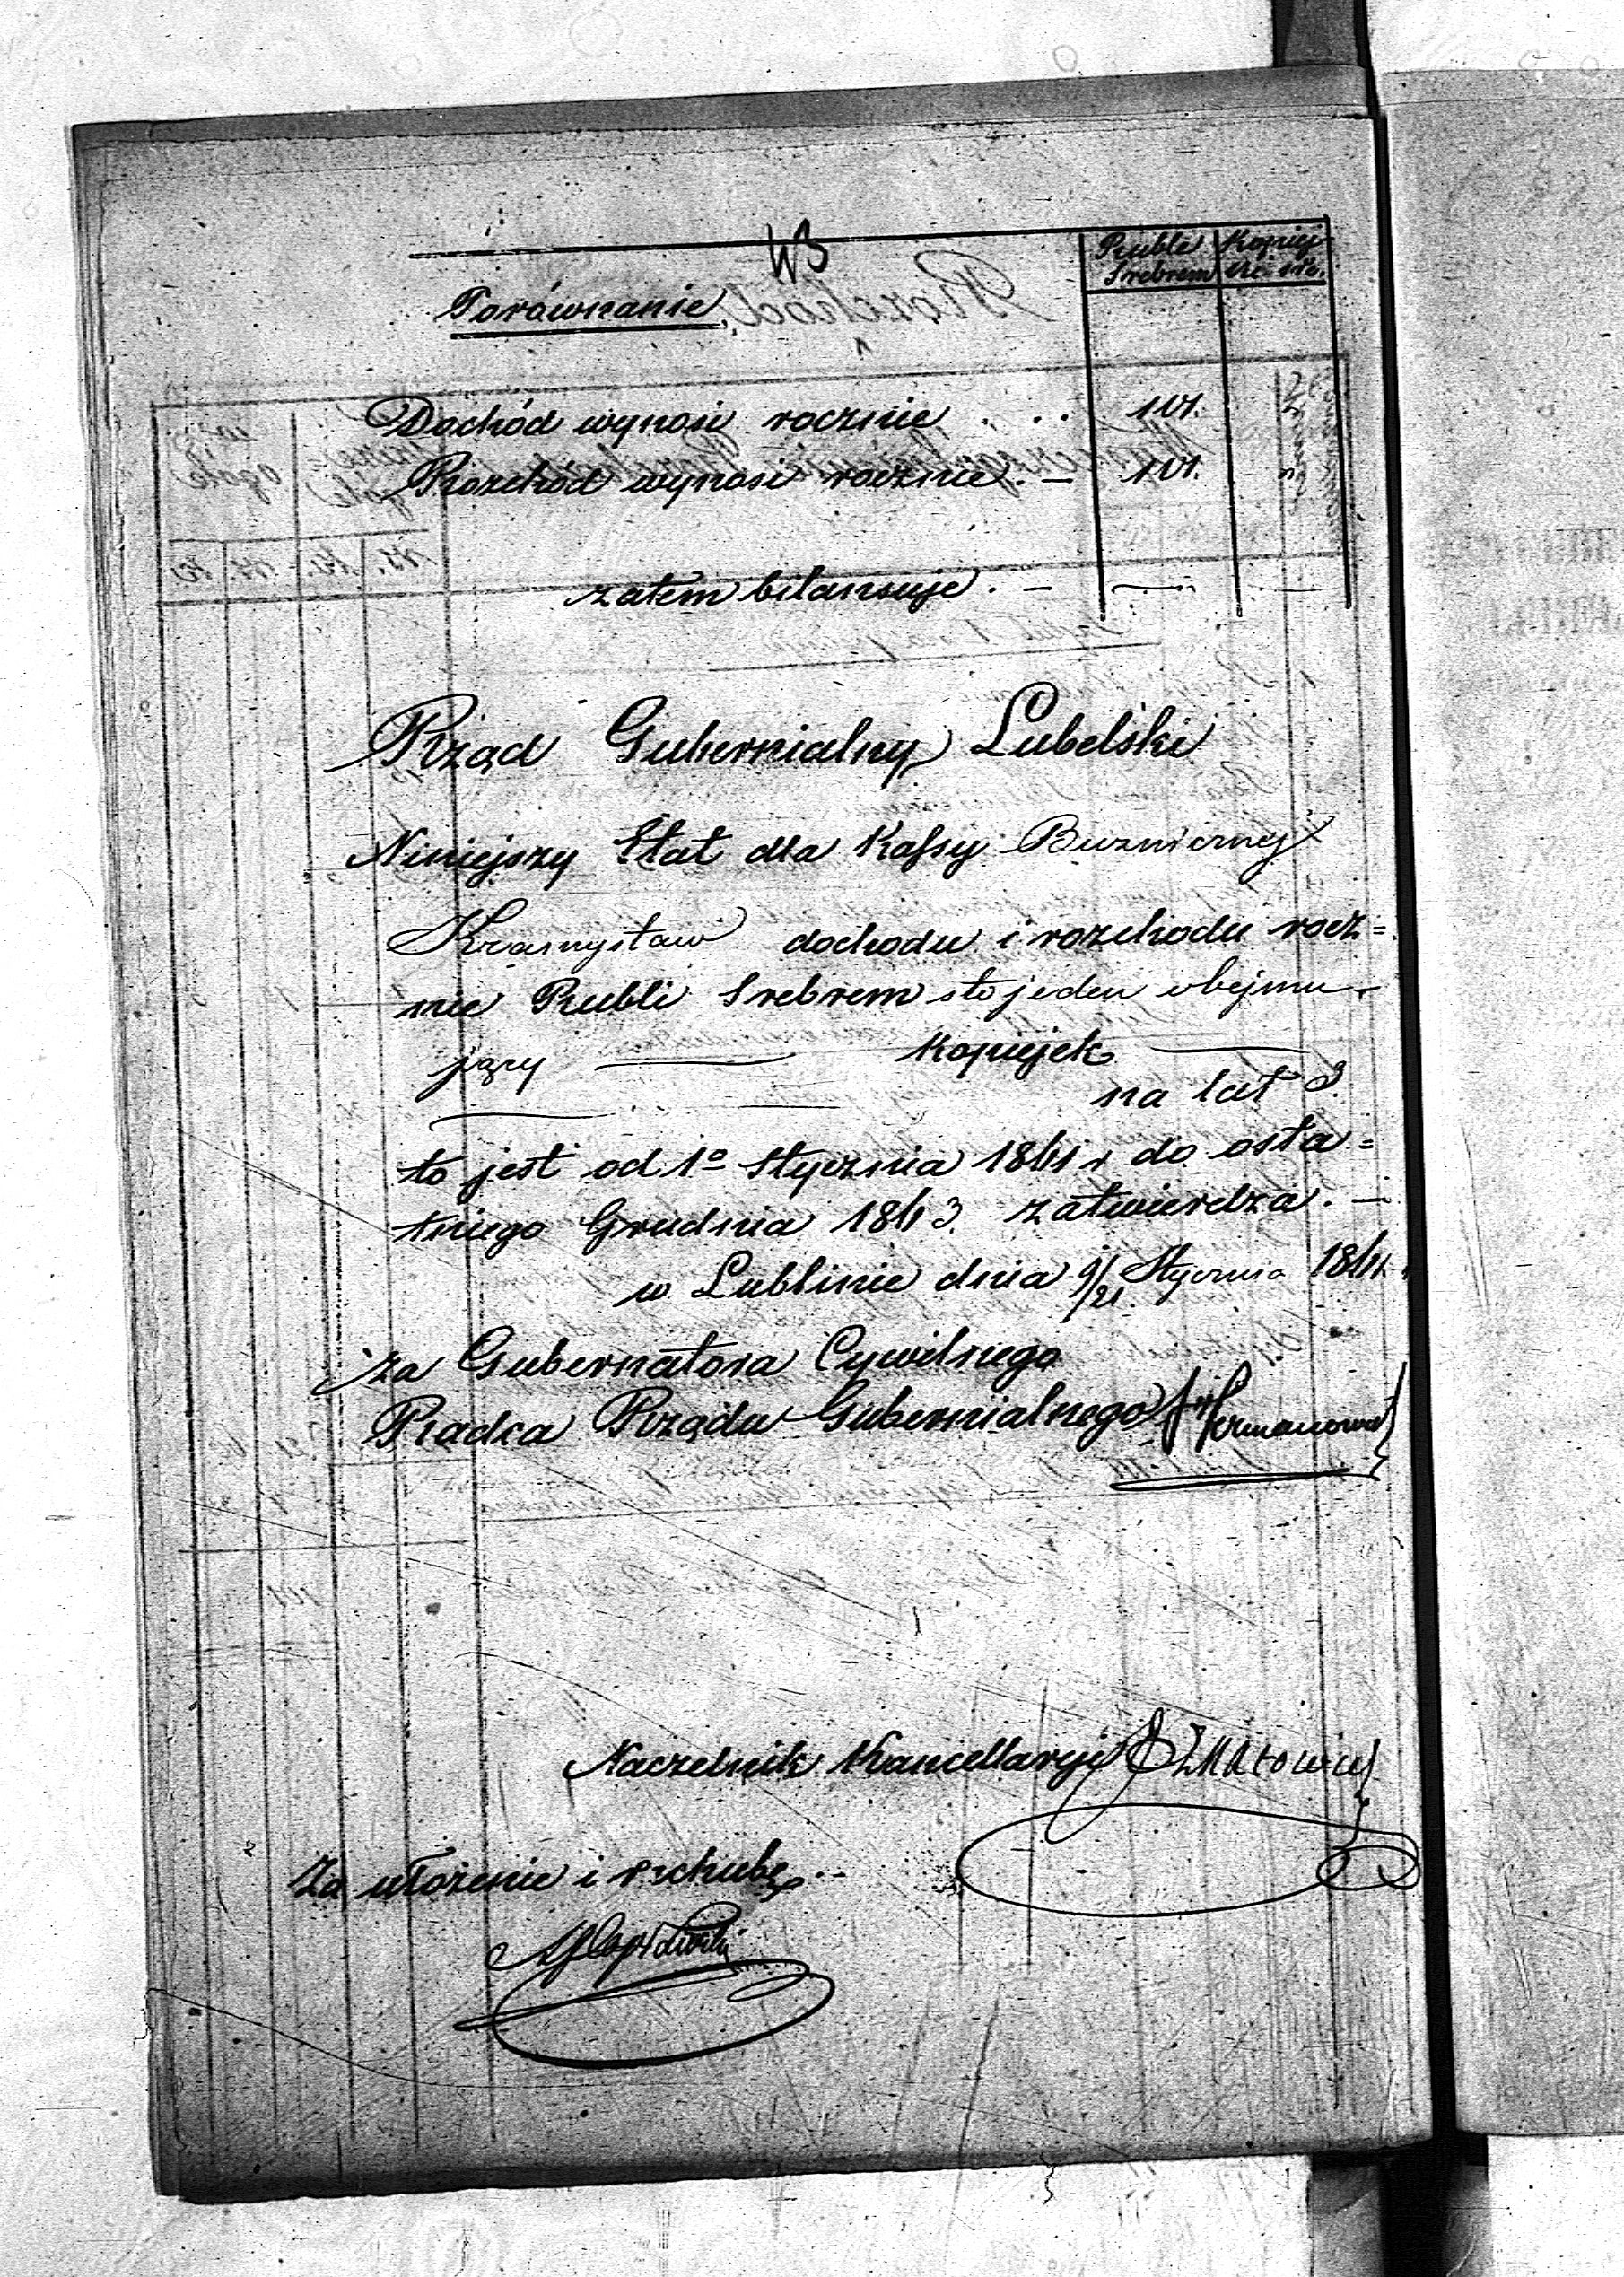 Rubli Kopiej
Srebrem
Porównanie
Dochód wynosi rocznie . . . 101.
Rozchód wynosi rocznie . — 101.
zatem bilansuje . — —
Rząd Gubernialny Lubelski
Niniejszy Etat dla Kassy Bużnicznej
Krasnystaw dochodu i rozchodu rocz=
nie Rubli Srebrem sto jeden obejmu-
jący — Kopiejek —
na lat 3.
to jest od 1o Stycznia 1861 r do osta=
tniego Grudnia 1863. zatwierdza. —
w Lublinie dnia 9/21 Stycznia 1861.
za Gubernatora Cywilnego
Radca Rządu Gubernialnego
Naczelnik Kancellaryi
Za ułożenie i rachubę